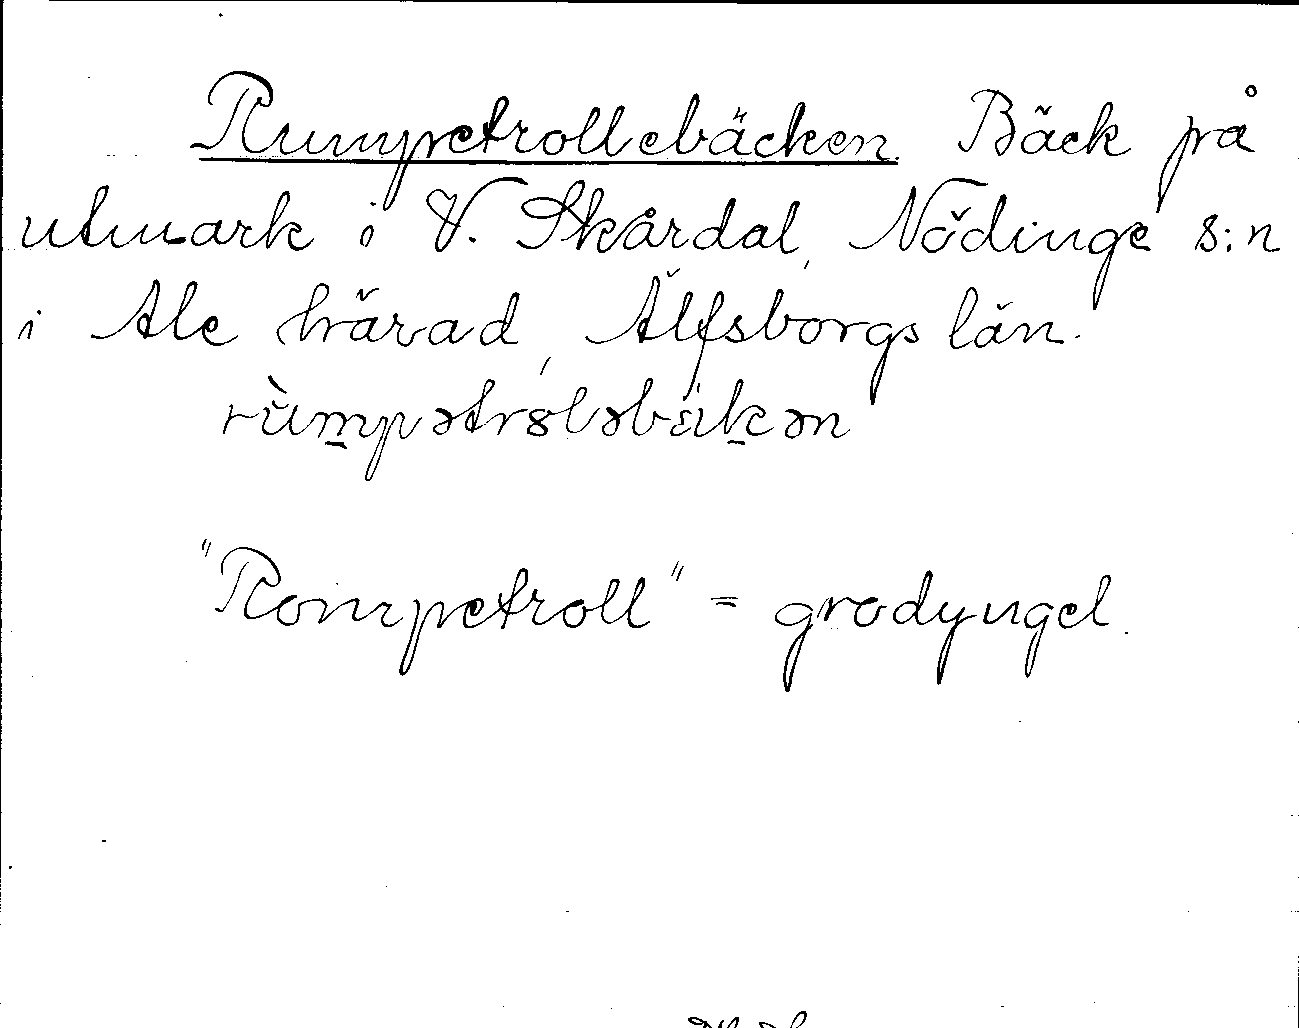 Rumpetrollebäcken Bäck på
utmark i V. Skårdal, Nödinge s:n
i Ale härad, Älfsborgs län.
"Rompetroll" = grodyngel.